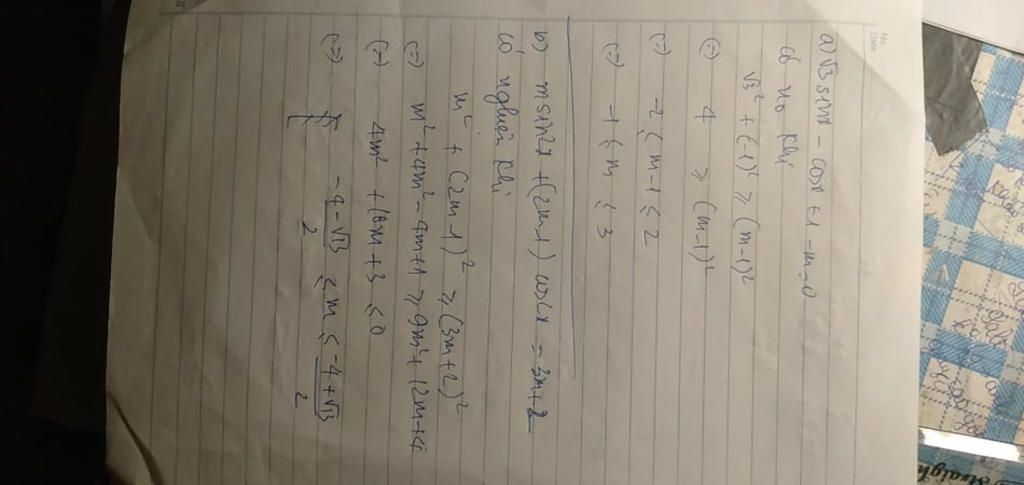 No.
Date
a) √3 sinx - cosx + 1 - m = 0
có no khi
√3² + (-1)² ≥ (m-1)²
(=) 4 ≥ (m-1)²
(=) -2 ≤ m-1 ≤ 2
(=) -1 ≤ m ≤ 3
b) m sin2x + (2m-1) cos2x = 3m+2
có nghiệm khi
m² + (2m-1)² ≥ (3m+2)²
(=) m² + 4m² - 4m+1 ≥ 9m² + 12m+4
(=) 4m² + 16m + 3 ≤ 0
(=) -4-√13 / 2 ≤ m ≤ -4+√13 / 2
Straigh